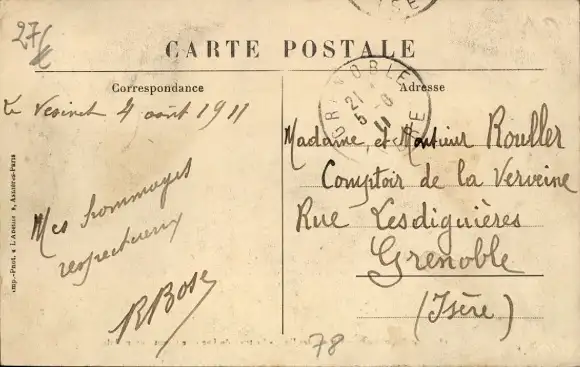 27/
CARTE POSTALE
Correspondance
Adresse
GRENOBLE
21
5-8
11
ISERE
Le Vesinet 4 août 1911
Mes hommages
respectueux
R Bose
Madame et Monsieur Rouller
Comptoir de la Verveine
Rue Lesdiguières
Grenoble
(Isère)
78
Imp.-Phot. « L'Abeille », Asnières-Paris